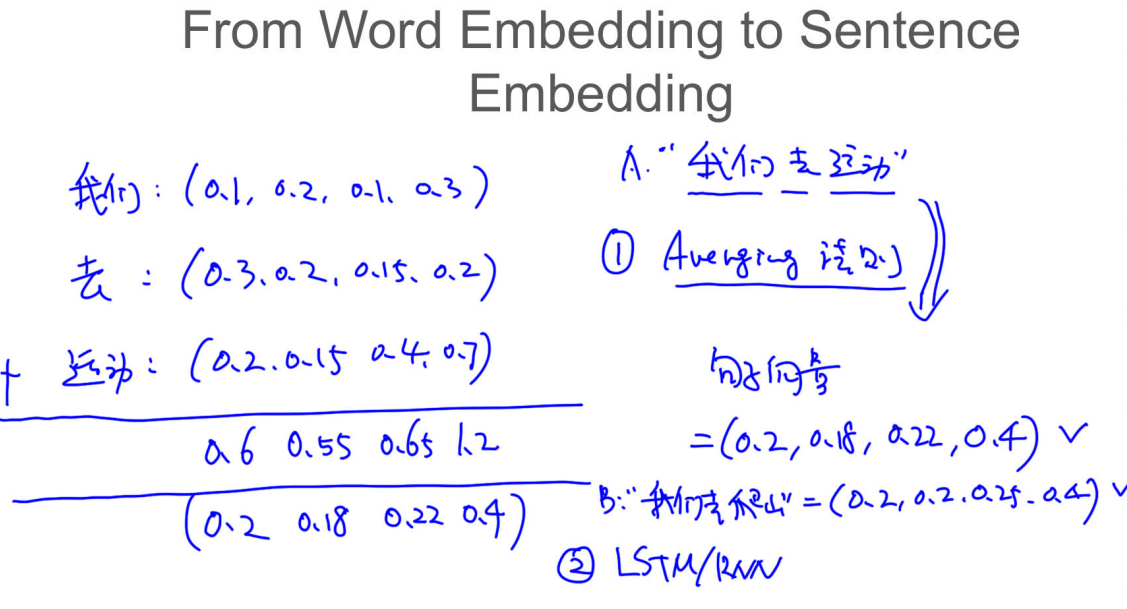 From Word Embedding to Sentence
Embedding
我们: (0.1, 0.2, 0.1, 0.3)
去 : (0.3, 0.2, 0.15, 0.2)
+ 运动: (0.2, 0.15 0.4, 0.7)
0.6 0.55 0.65 1.2
(0.2 0.18 0.22 0.4)
A. "我们去运动"
① Averging 法则
句子向量
=(0.2, 0.18, 0.22, 0.4) ✓
B: "我们去爬山" = (0.2, 0.2, 0.25, 0.4) ✓
② LSTM/RNN